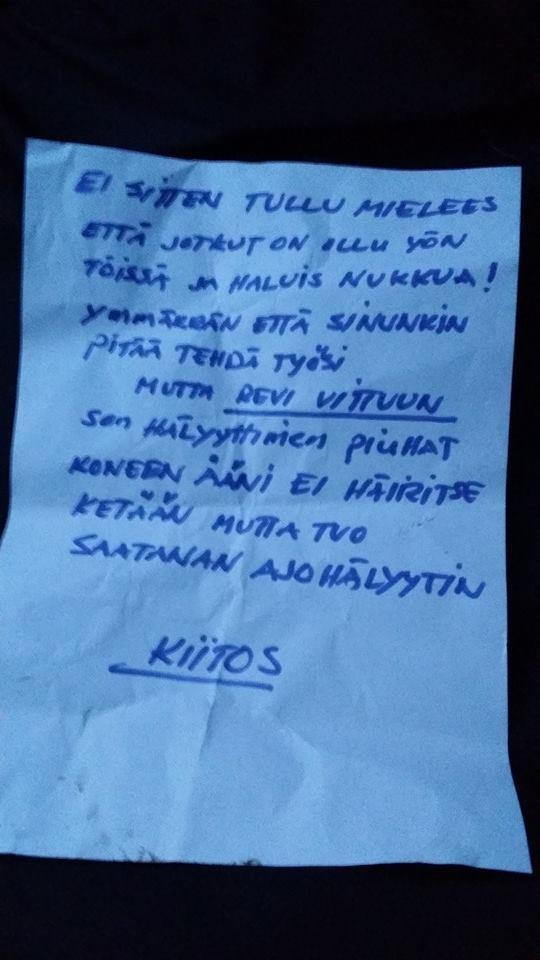 EI SITTEN TULLU MIELEES
ETTÄ JOTKUT ON OLLU YÖN
TÖISSÄ JA HALUIS NUKKUA!
YMMÄRRÄN ETTÄ SINUNKIN
PITÄÄ TEHDÄ TYÖSI
MUTTA REVI VITTUUN
SEN HÄLYYTTIMEN PIUHAT
KONEEN ÄÄNI EI HÄIRITSE
KETÄÄN MUTTA TUO
SAATANAN AJOHÄLYYTIN
KIITOS